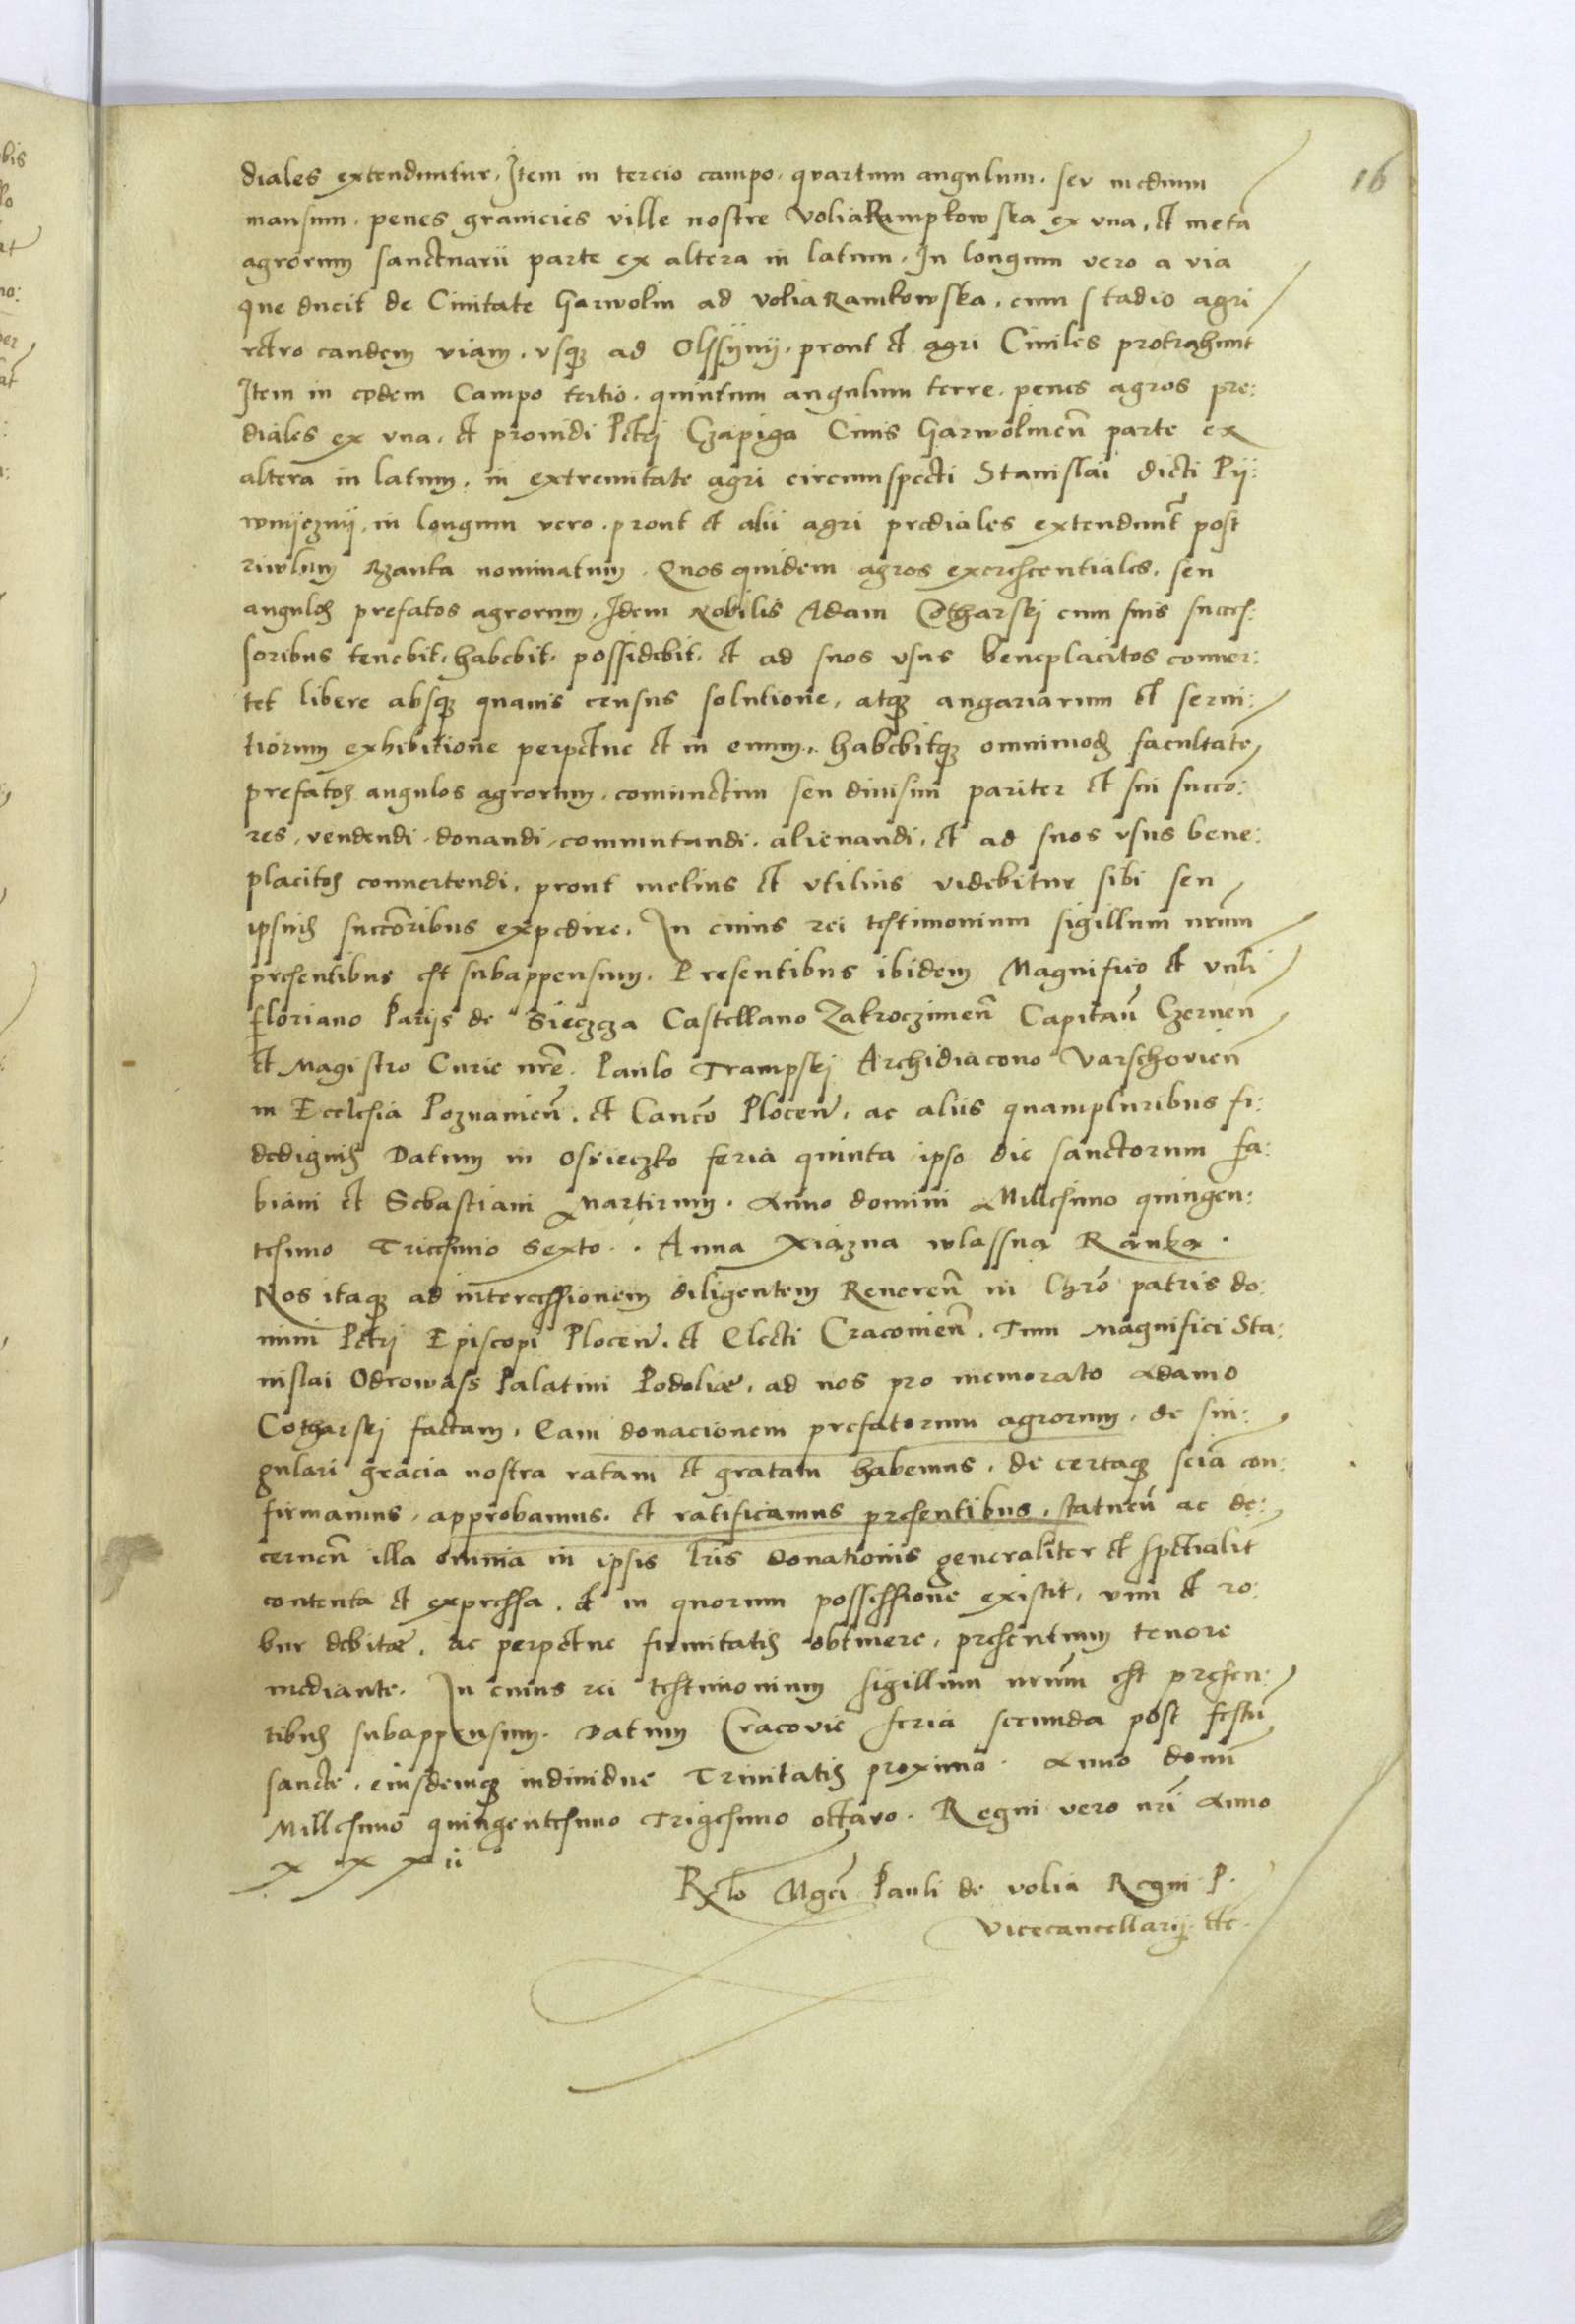 16
diales extenduntur. Item in tercio campo. quartum angulum. seu medium
mansum. penes granicies ville nostre VoliaRampkowska ex vna, et metã
agrorum sanctuarii parte ex altera in latum. In longum vero a via
que ducit de Ciuitate Garwolin ad VoliaRamkowska, cum stadio agri
retro eandem viam. vsq₃ ad Olssÿnÿ, prout et agri Ciuiles protrahunt
Item in eodem Campo tertio. quintum angulum terre. penes agros pre:
diales ex vna. et prouidi Petri Czapiga Ciuis Garwolinen̄ parte ex
altera in latum. in extremitate agri circumspecti Stanislai dicti Pÿ:
wnÿcznÿ. in longum vero. prout et alii agri prediales extendunt̄ post
riuulum Rzanka nominatum. Quos quidem agros excrescentiales. seu
angulos prefatos agrorum, Idem Nobilis Adam Cotharskj cum suis succes:
soribus tenebit. habebit. possidebit. et ad suos vsus beneplacitos conuer:
tet libere absq₃ quauis census solutione, atq₃ angariarum et serui:
tiorum exhibitione perpetue et in euum. habebitq₃ omnimodã facultatẽ
prefatos angulos agrorum. coniunctim seu diuisim pariter et sui succõ:
res, vendendi. donandi. commutandi. alienandi. et ad suos vsus bene:
placitos conuertendi. prout melius et vtilius videbitur sibi seu
ipsius succõribus expedire. In cuius rei testimonium sigillum nr̄um
presentibus est subappensum. Presentibus ibidem Magnifico et vnli
floriano Parijs de Sieczcza Castellano Zakroczimen̄ Capitan̄ Czernen̄
et Magistro Curie nr̄e. Paulo Trampskj Archidiacono Varschouien̄
in Ecclesia Poznanien̄. et Canc̄o Plocen̄. ac aliis quampluribus fi:
dedignis Datum in Ossieczko feria quinta ipso die sanctorum fa:
biani et Sebastiani Martirum. Anno domini Millesimo quingen:
tesimo Tricesimo Sexto. Anna Xiązna wlassna Rąnka.
Nos itaq₃ ad intercessionem diligentem Reueren̄ in Chr̄o patris do:
mini Petrj Episcopi Plocen̄. et Electi Cracouien̄. Tum Magnifici Sta:
nislai Odrowass Palatini Podoliæ. ad nos pro memorato Adamo
Cotharskj factam. Eam donacionem prefatorum agrorum. de sin:
gulari gracia nostra ratam et gratam habemus. de certaq₃ sciã con:
firmamus. approbamus. et ratificamus presentibus. statuen̄ ac de:
cernen̄ illa omnia in ipsis lr̄is donationis generaliter et specialit̄
contenta et expressa. et in quorum possessione existit, vim et ro:
bur debitæ, ac perpetue firmitatis obtinere, presentium tenore
mediante. In cuius rei testimonium sigillum nr̄um est presen:
tibus subappensum. Datum Cracovie feria secunda post festũ
sancte, eiusdemq₃ indiuidue Trinitatis proxima. Anno domĩ
Millesimo quingentesimo Trigesimo octavo. Regni vero nr̄i Anno
xxxii
Rlo Mgci Pauli de volia Regni P.
vicecancellarij. etc.